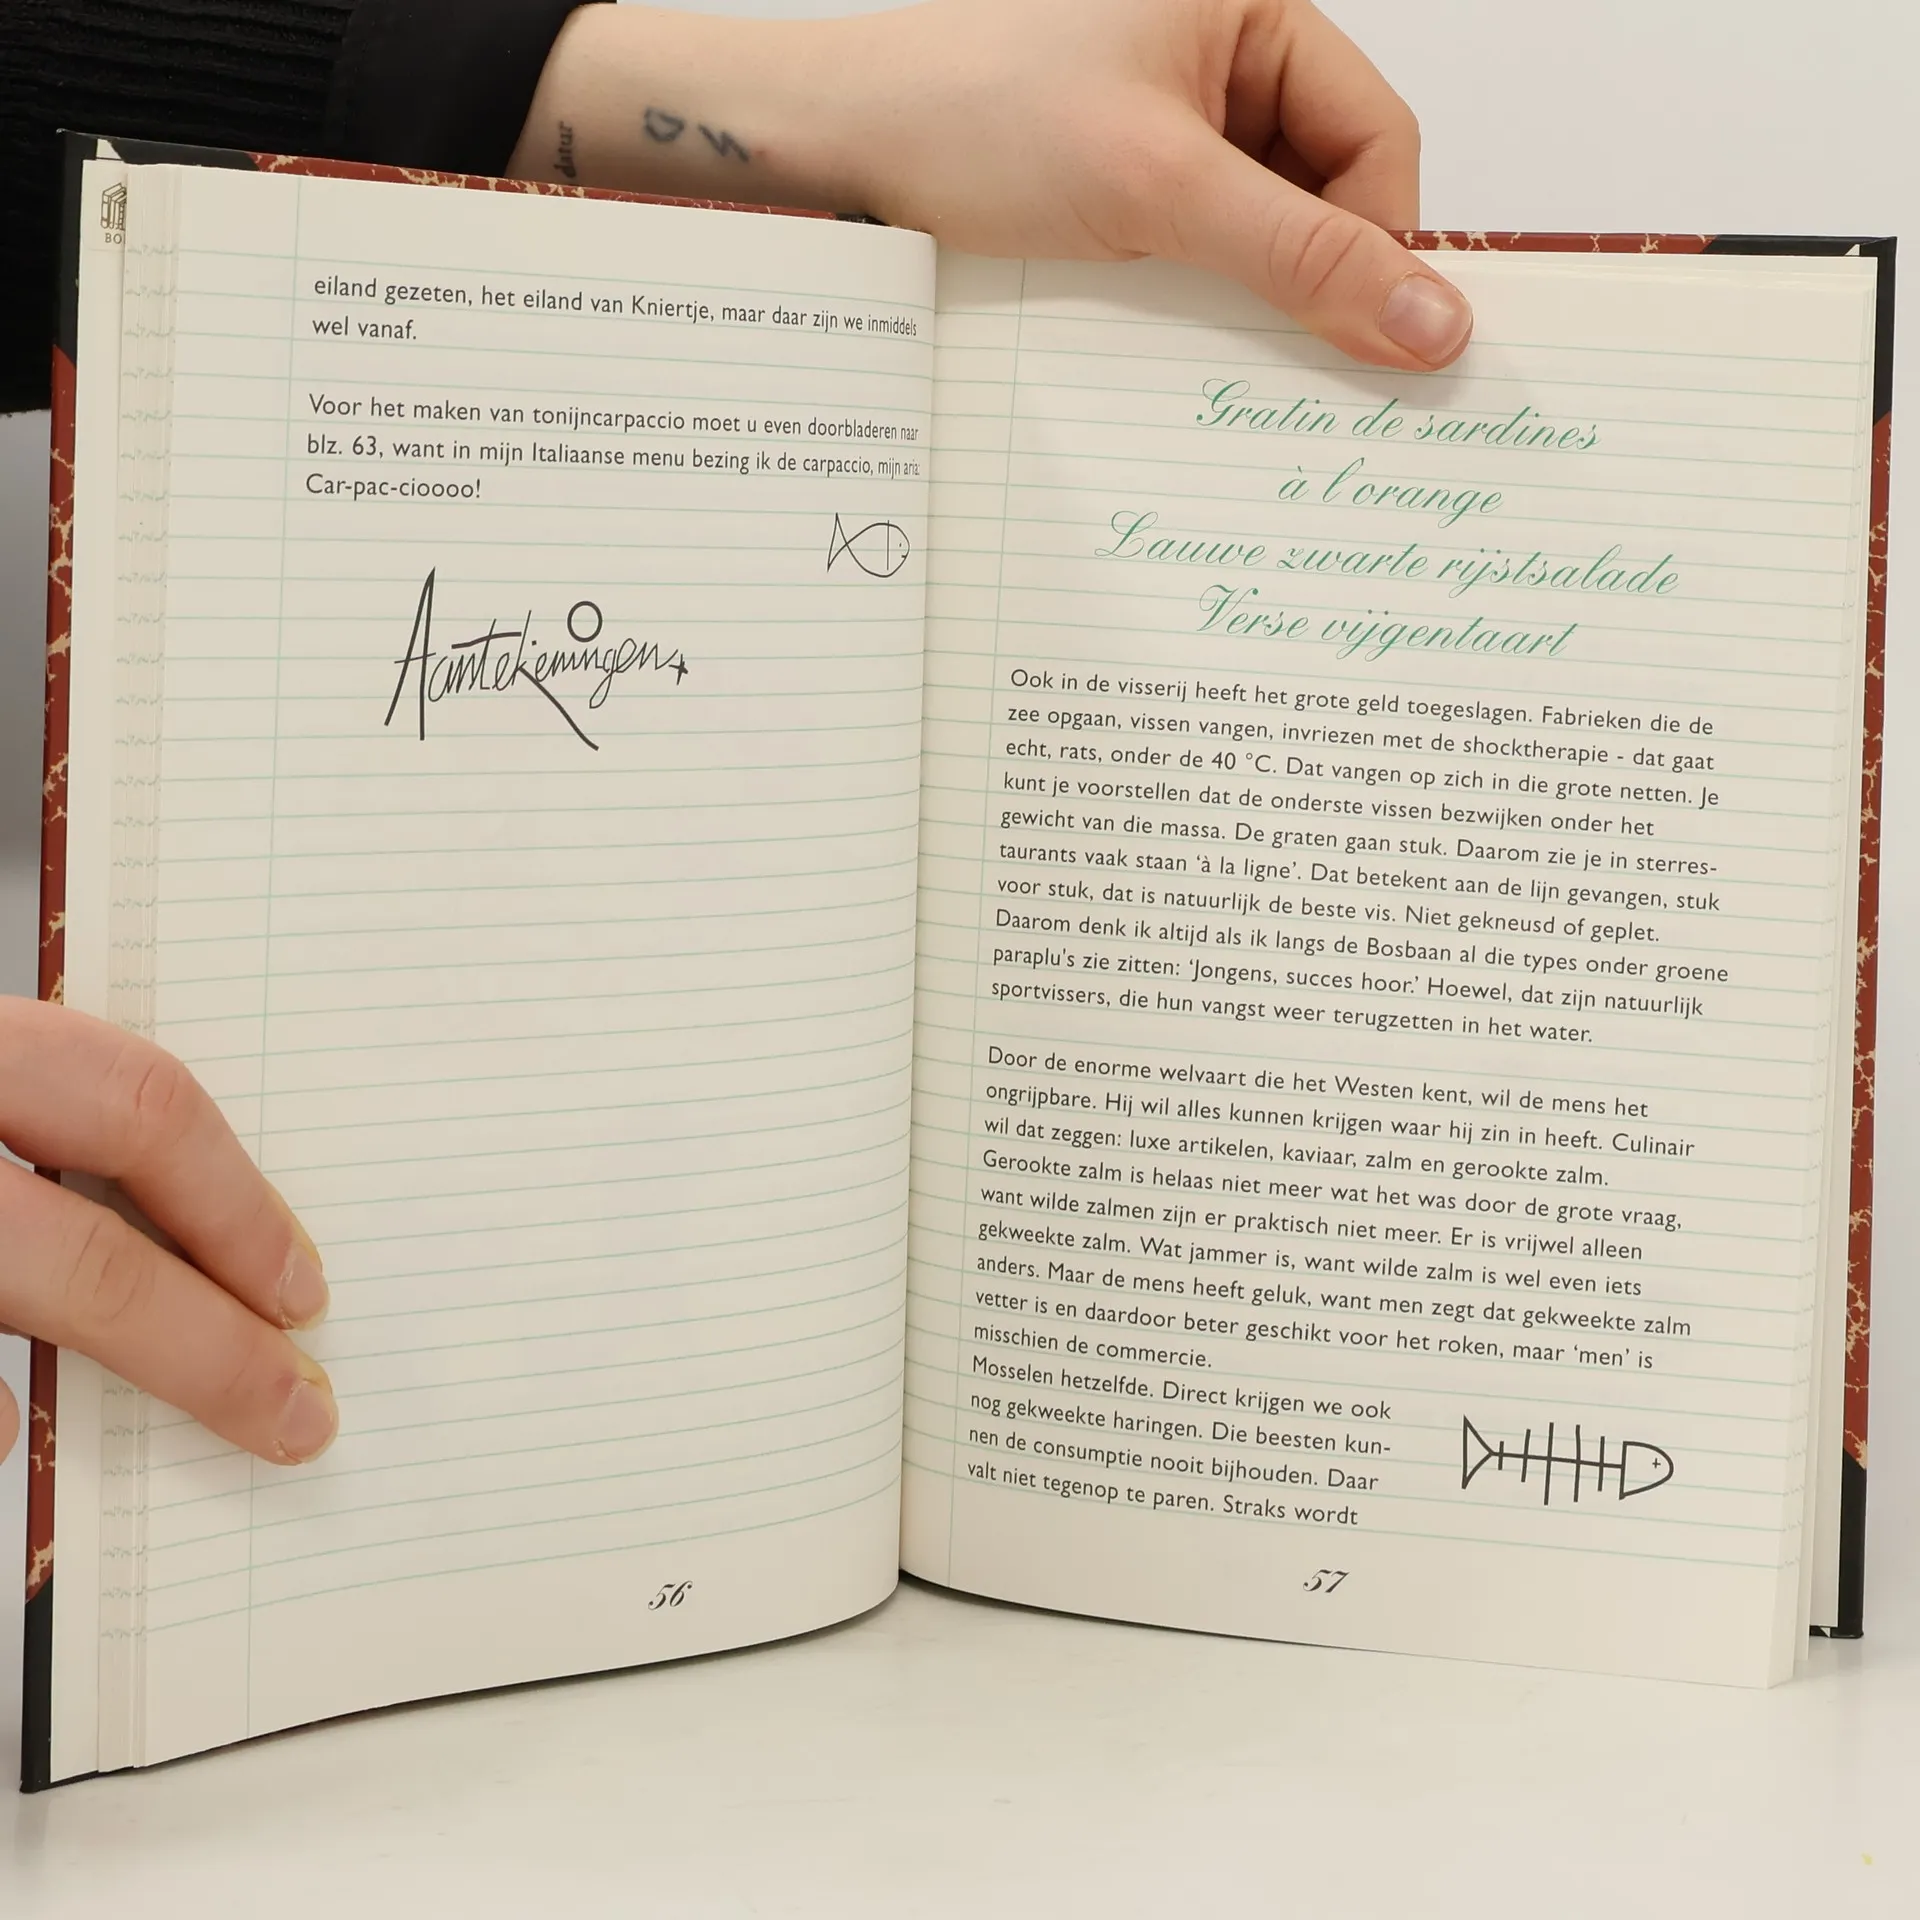 datur
BO
eiland gezeten, het eiland van Kniertje, maar daar zijn we inmiddels
wel vanaf.
Voor het maken van tonijncarpaccio moet u even doorbladeren naar
blz. 63, want in mijn Italiaanse menu bezing ik de carpaccio, mijn aria:
Car-pac-cioooo!
Aantekeningen
56
Gratin de sardines
à l'orange
Lauwe zwarte rijstsalade
Verse vijgentaart
Ook in de visserij heeft het grote geld toegeslagen. Fabrieken die de
zee opgaan, vissen vangen, invriezen met de shocktherapie - dat gaat
echt, rats, onder de 40 °C. Dat vangen op zich in die grote netten. Je
kunt je voorstellen dat de onderste vissen bezwijken onder het
gewicht van die massa. De graten gaan stuk. Daarom zie je in sterres-
taurants vaak staan ‘à la ligne’. Dat betekent aan de lijn gevangen, stuk
voor stuk, dat is natuurlijk de beste vis. Niet gekneusd of geplet.
Daarom denk ik altijd als ik langs de Bosbaan al die types onder groene
paraplu's zie zitten: ‘Jongens, succes hoor.’ Hoewel, dat zijn natuurlijk
sportvissers, die hun vangst weer terugzetten in het water.
Door de enorme welvaart die het Westen kent, wil de mens het
ongrijpbare. Hij wil alles kunnen krijgen waar hij zin in heeft. Culinair
wil dat zeggen: luxe artikelen, kaviaar, zalm en gerookte zalm.
Gerookte zalm is helaas niet meer wat het was door de grote vraag,
want wilde zalmen zijn er praktisch niet meer. Er is vrijwel alleen
gekweekte zalm. Wat jammer is, want wilde zalm is wel even iets
anders. Maar de mens heeft geluk, want men zegt dat gekweekte zalm
vetter is en daardoor beter geschikt voor het roken, maar ‘men’ is
misschien de commercie.
Mosselen hetzelfde. Direct krijgen we ook
nog gekweekte haringen. Die beesten kun-
nen de consumptie nooit bijhouden. Daar
valt niet tegenop te paren. Straks wordt
57